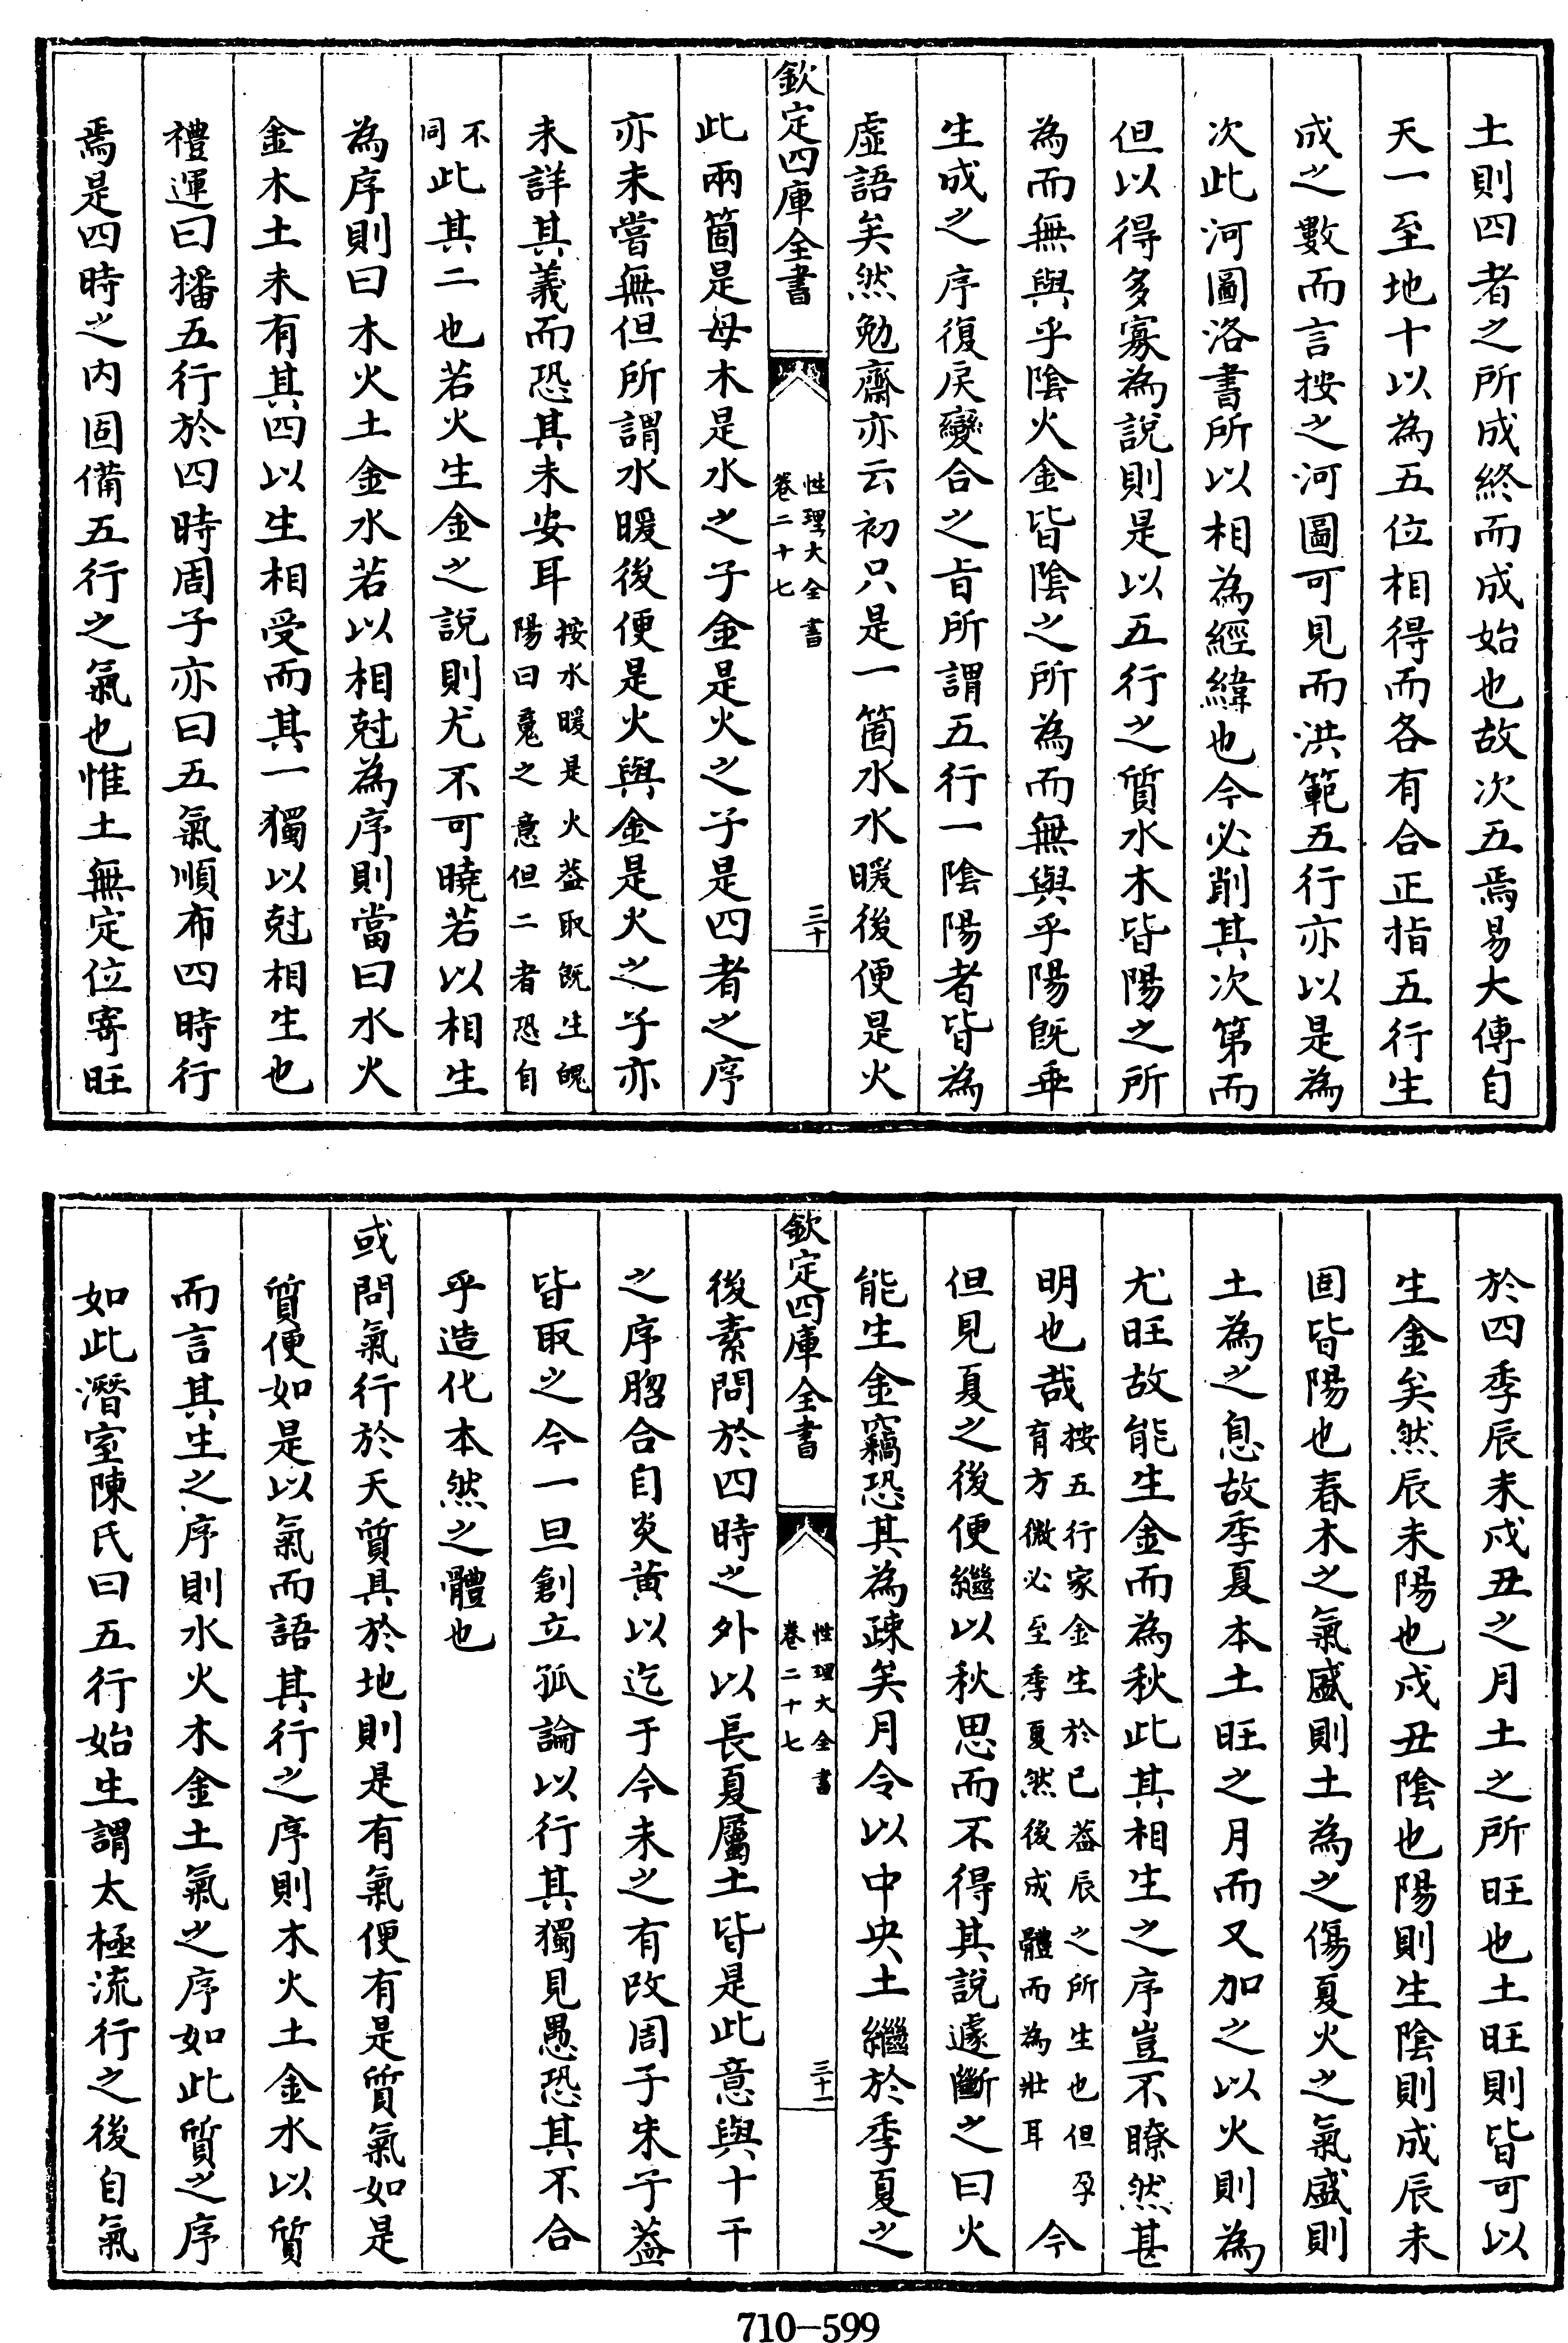 土則四者之所成終而成始也故次五焉易大傳自
天一至地十以為五位相得而各有合正指五行生
成之數而言按之河圖可見而洪範五行亦以是為
次此河圖洛書所以相為經緯也今必削其次第而
但以得多寡為說則是以五行之質水木皆陽之所
為而無與乎陰火金皆陰之所為而無與乎陽既乖
生成之序復戾變合之旨所謂五行一陰陽者皆為
虛語矣然勉齋亦云初只是一箇水水暖後便是火
欽定四庫全書
性理大全書
卷二十七
三十
此兩箇是母木是水之子金是火之子是四者之序
亦未嘗無但所謂水暖後便是火與金是火之子亦
未詳其義而恐其未安耳按水暖是火葢取既生魄
陽曰䰟之意但二者恐自
不
同此其二也若火生金之說則尤不可曉若以相生
為序則曰木火土金水若以相尅為序則當曰水火
金木土未有其四以生相受而其一獨以尅相生也
禮運曰播五行於四時周子亦曰五氣順布四時行
焉是四時之内固備五行之氣也惟土無定位寄旺
於四季辰未戍丑之月土之所旺也土旺則皆可以
生金矣然辰未陽也戍丑陰也陽則生陰則成辰未
固皆陽也春木之氣盛則土為之傷夏火之氣盛則
土為之息故季夏本土旺之月而又加之以火則為
尤旺故能生金而為秋此其相生之序豈不瞭然甚
明也哉按五行家金生於已葢辰之所生也但孕
育方微必至季夏然後成體而為壯耳今
但見夏之後便繼以秋思而不得其說遽斷之曰火
能生金竊恐其為疎矣月令以中央土繼於季夏之
欽定四庫全書
性理大全書
卷二十七
三十一
後素問於四時之外以長夏屬土皆是此意與十干
之序脗合自炎黄以迄于今未之有改周子朱子葢
皆取之今一旦創立孤論以行其獨見愚恐其不合
乎造化本然之體也
或問氣行於天質具於地則是有氣便有是質氣如是
質便如是以氣而語其行之序則木火土金水以質
而言其生之序則水火木金土氣之序如此質之序
如此潛室陳氏曰五行始生謂太極流行之後自氣
710-599